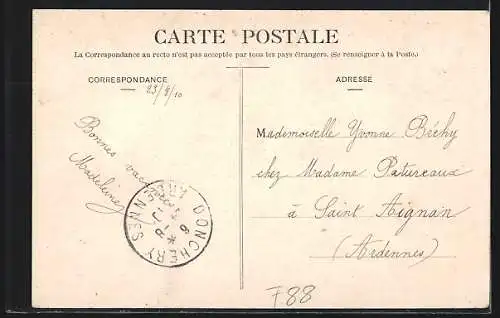 CARTE POSTALE
La Correspondance au recto n'est pas acceptée par tous les pays étrangers. (Se renseigner à la Poste.)
CORRESPONDANCE
23/8/10
Bonnes
Madeleine
DONCHERY
ADRESSE
Mademoiselle Yvonne Béchy
chez Madame Patureaux
à Saint Aignan
(Ardennes)
F88